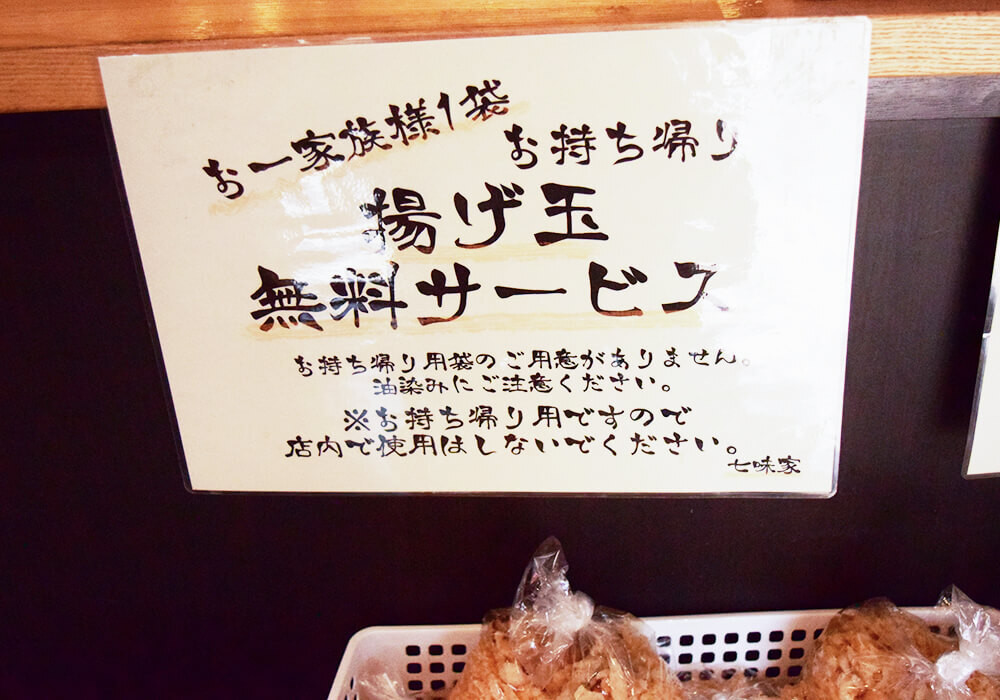 お一家族様1袋
お持ち帰り
揚げ玉
無料サービス
お持ち帰り用袋のご用意がありません。
油染みにご注意ください。
※お持ち帰り用ですので
店内で使用はしないでください。
七味家